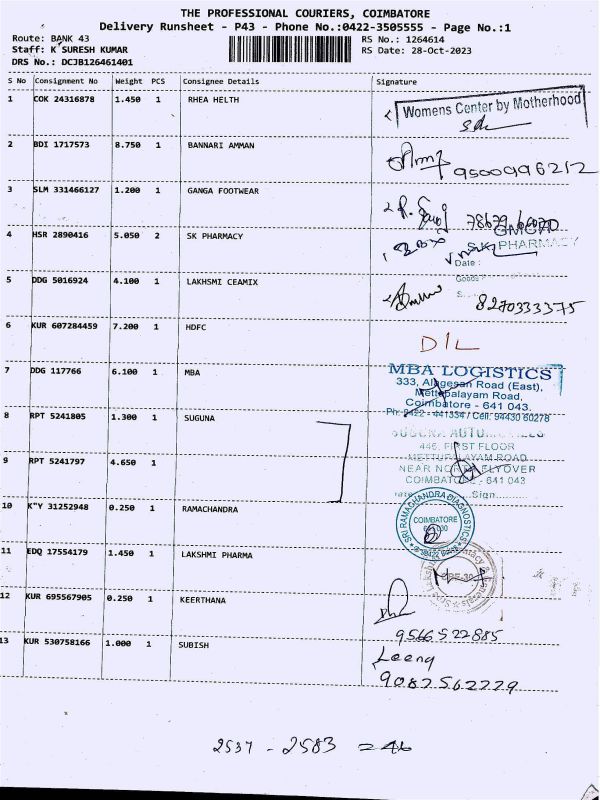 THE PROFESSIONAL COURIERS, COIMBATORE
Delivery Runsheet - P43 - Phone No.:0422-3505555 - Page No.:1
Route: BANK 43 RS No.: 1264614
Staff: K SURESH KUMAR RS Date: 28-Oct-2023
DRS No.: DCJB126461401
S No Consignment No Weight PCS Consignee Details Signature
1 COK 24316878 1.450 1 RHEA HELTH
Womens Center by Motherhood
2 BDI 1717573 8.750 1 BANNARI AMMAN
9500996212
3 SLM 331466127 1.200 1 GANGA FOOTWEAR
4 HSR 2890416 5.050 2 SK PHARMACY
S.K. PHARMACY
Date :
5 DDG 5016924 4.100 1 LAKHSMI CEAMIX
8270333375
6 KUR 607284459 7.200 1 HDFC
DIL
7 DDG 117766 6.100 1 MBA
MBA LOGISTICS
333, Alagesan Road (East),
Mettupalayam Road,
Coimbatore - 641 043.
Ph: 0422 - 441334 / Cell: 94430 60278
8 RPT 5241805 1.300 1 SUGUNA
446, FIRST FLOOR
METTUPALAYAM ROAD
9 RPT 5241797 4.650 1
NEAR NORTH FLYOVER
COIMBATORE - 641 043
Sign
10 K"Y 31252948 0.250 1 RAMACHANDRA
SRI RAMACHANDRA DIAGNOSTICS
COIMBATORE
11 EDQ 17554179 1.450 1 LAKSHMI PHARMA
12 KUR 695567905 0.250 1 KEERTHANA
9566522885
13 KUR 530758166 1.000 1 SUBISH
Leena
9087562779
2537 - 2583 = 46